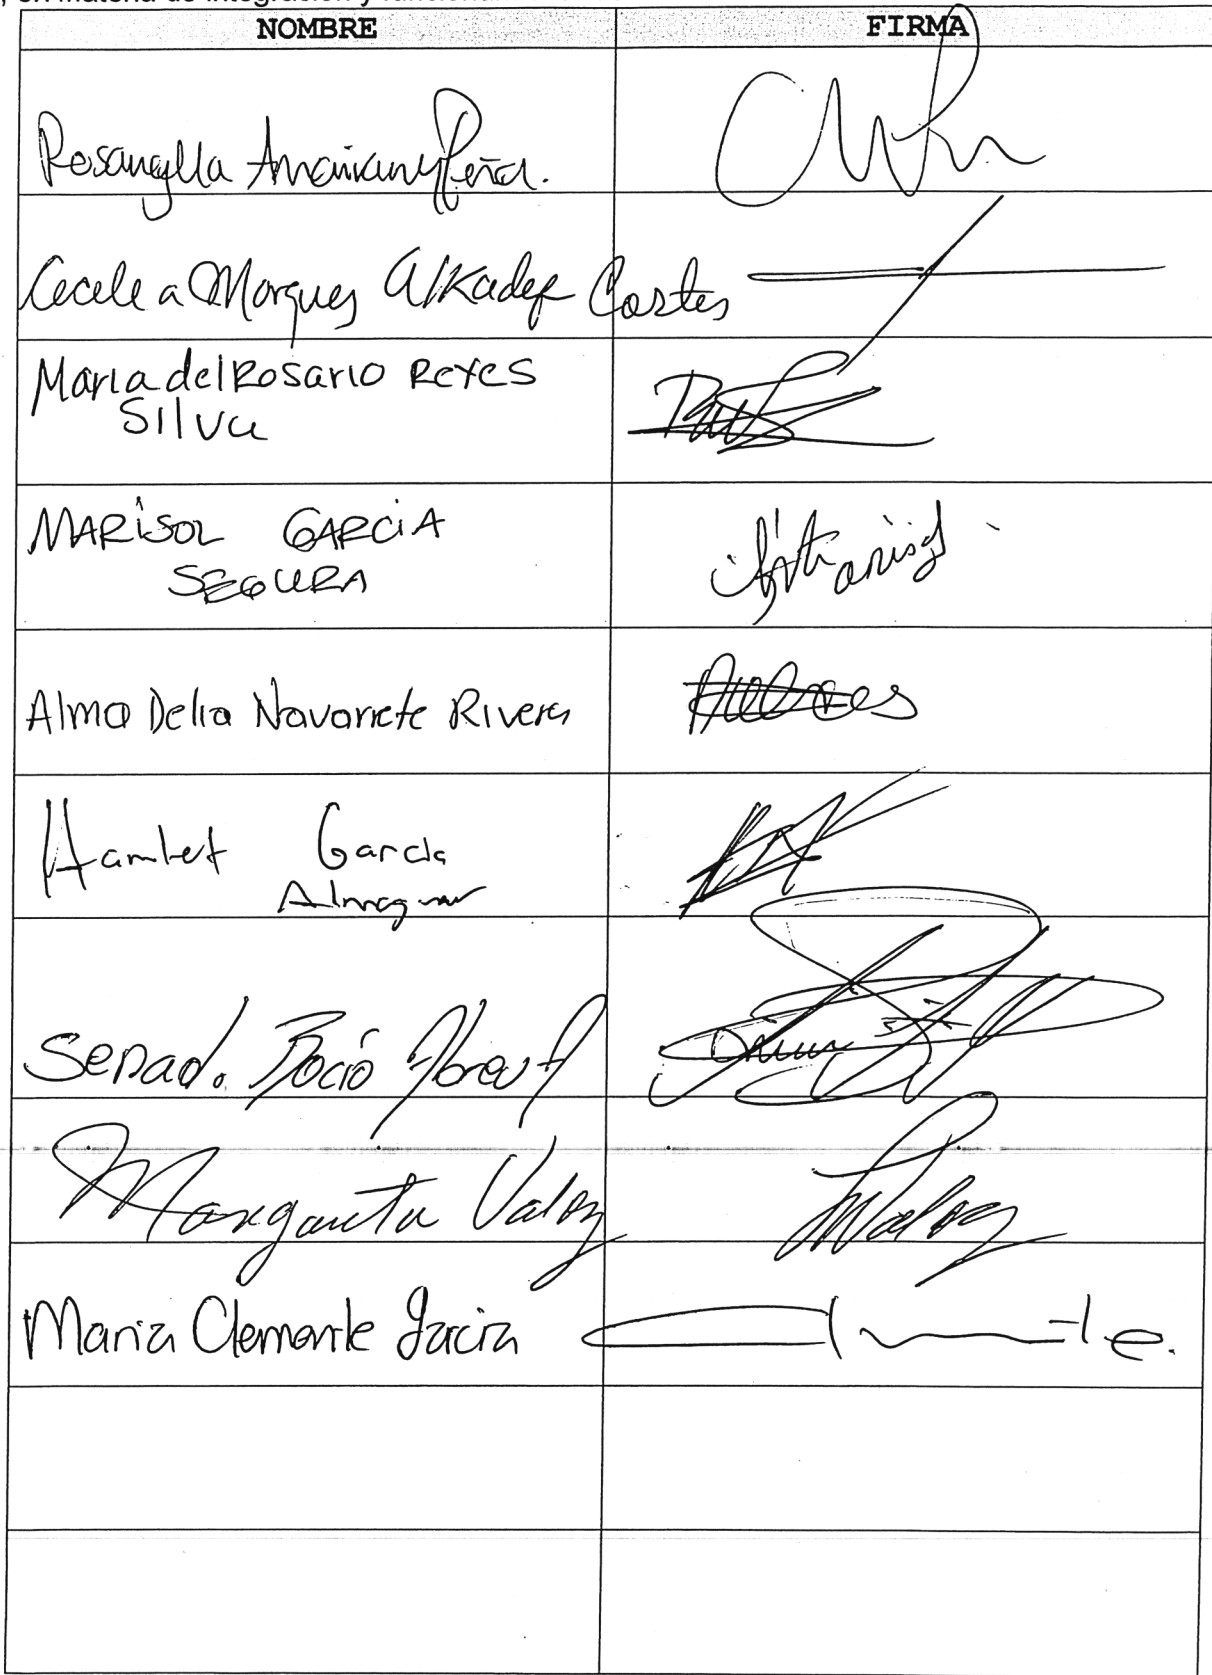 , en materia de integración y
NOMBRE FIRMA
Rosangella Amairany Peña.
Cecilea Marques Alkadef Cortes
Maria del Rosario Reyes
Silva
MARiSOL GARCiA
SEGURA
Alma Delia Navarrete Rivera
Hamlet Garcia
Almaguer
Senad. Rocío Abreu A
Margarita Valdez
Maria Clemente García Clemente.